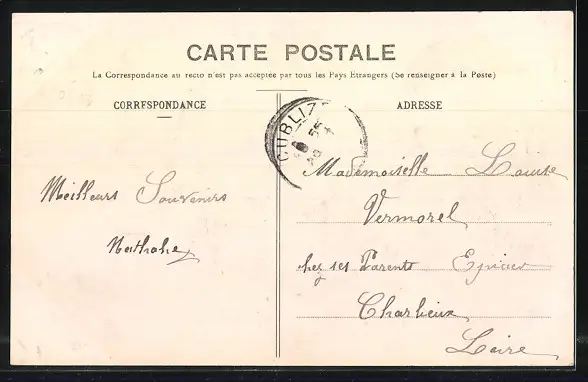 CARTE POSTALE
La Correspondance au recto n'est pas acceptée par tous les Pays Etrangers (Se renseigner à la Poste)
CORRESPONDANCE
ADRESSE
CUBLIZE
Meilleurs Souvenirs
Mademoiselle Louise
Vermorel
chez ses Parents Epicier
Charlieux
Loire